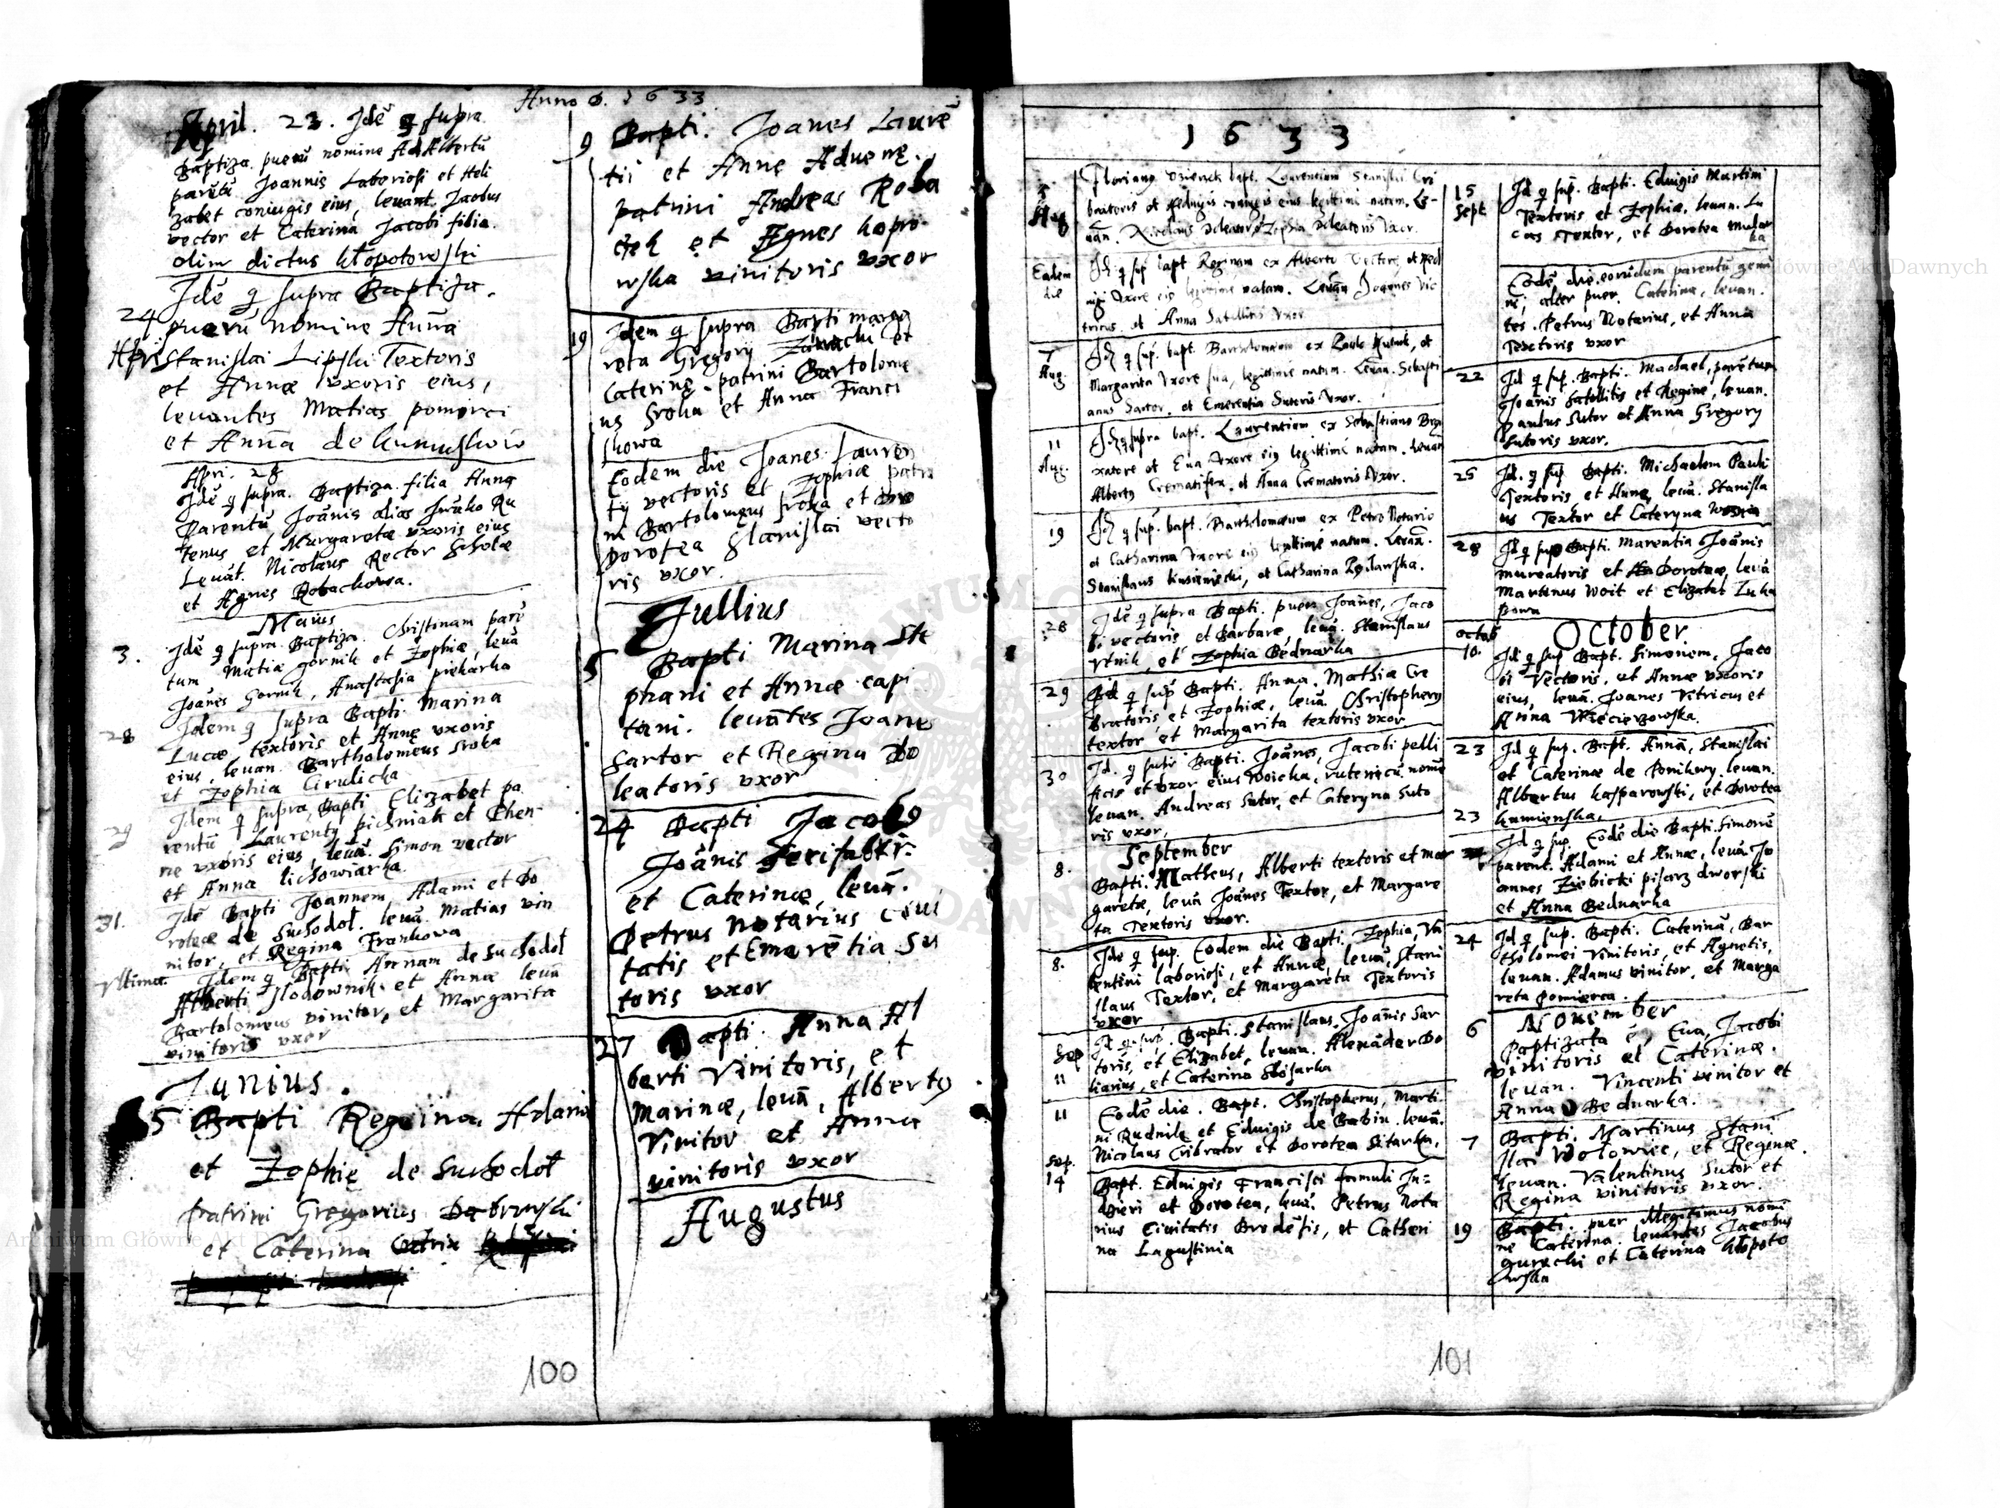 Anno D. 1633
April. 23. Idē q supra.
Baptiza. puerū nomine Adalbertū
parētū Joannis Laboriosi et Heli
zabet coniugis eius, levant. Jacobus
vector et Caterina Jacobi filia.
olim dictus Kłopotowski
Idē q supra Baptiza.
24 April
puerū nomine Anna
Stanislai Lipski Textoris
et Annæ vxoris eius,
levantes Matias pomorci
et Anna de
Apri. 28
Idē q supra. Baptiza. filia Anna
Parentū Joānis alias Ru
tenus et Margaretæ vxoris eius
Levāt. Nicolaus Rector Scholæ
et Agnes Robachowa.
Maius
3. Idē q supra. Baptiza. Christinam parē
tum Matiæ gornik et Zophiæ, levā
Joānes Gornik, Anastasia piekarka
28 Idem q supra Bapti. Marina
Lucæ textoris et Annę vxoris
eius, levan. Bartholomeus sroka
et Zophia Cirulicka
29 Idem q supra, Bapti Elizabet pa
rentū Laurenty pichniak et Phen-
ne vxoris eius, levā. Simon vector
et Anna lichowiarka
31. Idē Bapti Joannem, Adami et Do
roteæ de Suchodoł. levā. Matias vin
nitor, et Regina Frankowa
vltima. Idem q Bapti Annam de Suchodoł
Alberti Młodownik et Annæ levā
Bartolomeus vinitor, et Margarita
vinitoris vxor
Junius.
5 Bapti Regina, Adami
et Zophię de Suchodoł
patrini Gregorius Dabrowski
et Caterina
100
9 Bapti. Joanes Laurē
tii et Annę Aduenę.
patrini Andreas Roba
czek et Agnes kopro-
wska vinitoris vxor
19 Idem q supra Bapti marga
reta Gregory et
Caterinę. patrini Bartolome
us Sroka et Anna Franci
skowa
Eodem die Joanes Lauren
ty vectoris et Zophiæ patri
ni Bartolomęus sroka et
Dorotea Stanislai vecto
ris vxor.
Jullius
5 Bapti Marina Ste
phani et Annæ capi
tani. levātes Joanes
Sartor et Regina Do
leatoris vxor
24 Bapti Jacob9
Joānis ferifabri.
et Caterinæ, levā.
Petrus notarius Ciui
tatis et Emarētia su
toris vxor
27 Bapti. Anna Al
berti Vinitoris, et
Marinæ, levā, Alberty
Vinitor et Anna
vinitoris vxor
Augustus
1633
5 Aug
Florianq bapt. Laurentium Stanislai Cri
bratoris et Hedwigis coniugis eius legittimi natum. Le-
uan. Nicolaus doleator, Zophia doleatoris Vxor.
Eadem die
Id. q sup bapt Reginam ex Alberto Vectore, et Hed
wigi Vxore eiq legittime natam. Levan Joannes Vic
tricus, et Anna Satellitis Vxor
7 Aug.
Id. q sup. bapt. Bartholomeum ex Paulo et
Margarita Vxore sua, legittime natum. Levan. Sebasti
anus Sartor, et Emerentia Sutoris Vxor.
11 Aug.
Id. q supra bapt. Laurentium ex Sebastiano Bra
xatore et Eua Vxore eiq legittime natum. Levan
Albertq Crematifex, et Anna Crematoris Vxor.
19
Id. q sup. bapt. Bartholomæum ex Petro Notario
et Catharina Vxore eiq legittime natum. Levan.
Stanislaus et Catharina
28 Idē q supra Bapti. puer Joānes, Jaco
bi vectoris et Barbaræ, levā. Stanislaus
et Zophia Bednarka
29 Id q sup Bapti. Anna, Mathiæ Cre
Bratoris et Zophiæ, levā. Christopherq
textor et Margarita textoris vxor
30 Id. q supr Bapti. Joānes, Jacobi pelli
ficis et vxor eius Woicka, rutenicū nomē
levan. Andreas Sutor, et Cateryna Suto
ris vxor.
September
8. Bapti. Matheus, Alberti textoris et mar
garetæ, levā Joānes Textor, et Margare
ta Textoris vxor.
8. Idē q sup. Eodem die Bapti. Zophia, Va
lentini laboriosi, et Annæ, levā, Stani
slaus Textor, et Margareta Textoris
vxor
Sep 11
Id q sup. Bapti. Stanislaus, Joānis Sar
toris, et Elizabet, levan. Alexāder Do
liarius, et Caterina
11 Eodē die. Bapt. Christopherus, Marti
ni Rudnik et Eduigis de Babin. levā.
Nicolaus Cribrator et Dorotea Sitarka.
Sep. 14
Bapt. Eduigis Francisci famuli Ju=
dæi et Dorotea, levā. Petrus Nota
rius Ciuitatis Brodēsis, et Catheri
na Lagustinia
15 Sept
Id q sup. Bapti. Eduigis Martini
Textoris et Zophiæ. levan. Lu
cas textor, et Dorotea mular
ka
Eodē die eorūdem parentū gemi
ni, alter puer. Caterina, levan.
tes. Petrus Notarius, et Anna
Textoris vxor
22 Id q sup. Bapti. Michael, parētum
Joānis Satellitis et Reginæ, levan.
Paulus Sutor et Anna Gregory
Sutoris vxor.
25 Id. q sup Bapti. Michaelem Pauli
Textoris et Annæ, levā. Stanisla
us Textor et Cateryna
28 Id q sup Bapti. Marentia Joānis
murcatoris et Doroteæ, levā
Martinus Woit et Elizabet Luka
powa
October
Octob 10.
Id q sup Bapt. Simonem, Jaco
bi Vectoris, et Annæ vxoris
eius, levā. Joanes Vitricus et
Anna
23 Id q sup. Bapt. Annā, Stanislai
et Caterinæ de Ponikwy. levan.
Albertus Kasparowski, et Dorotea
Kamienska.
23 Id q sup. Eodē die Bapti. Simonē
parent. Adami et Annæ, levā Jo
annes Ziębicki pisarz dworski
et Anna Bednarka
24 Id q sup. Bapti. Caterinā, Bar
tholomei Vinitoris, et Agnetis,
levan. Adamus vinitor, et Marga
reta pomierca.
Nouember
6 Baptizata ē, Eua, Jacobi
vinitoris et Caterinæ.
levan. Vincenti vinitor et
Anna Bednarka.
7 Bapti. Martinus Stani
slai Wołowiec, et Reginæ.
levan. Valentinus Sutor et
Regina vinitoris vxor.
19 Bapti. puer illegitimus nomi
ne Caterina. levantes Jacobus
gurecki et Caterina kłopoto
wska
101
Archiwum Główne Akt Dawnych
Archiwum Główne Akt Dawnych